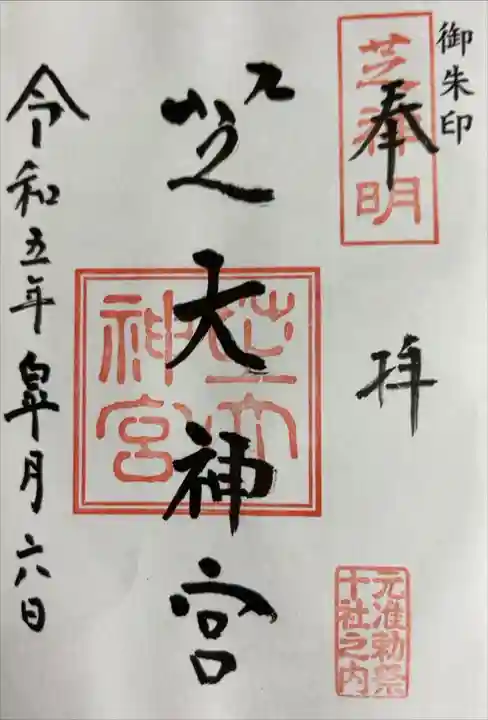 御朱印
芝神明
奉拝
芝大神宮
芝大神宮
元准勅祭
十社之内
令和五年皐月六日